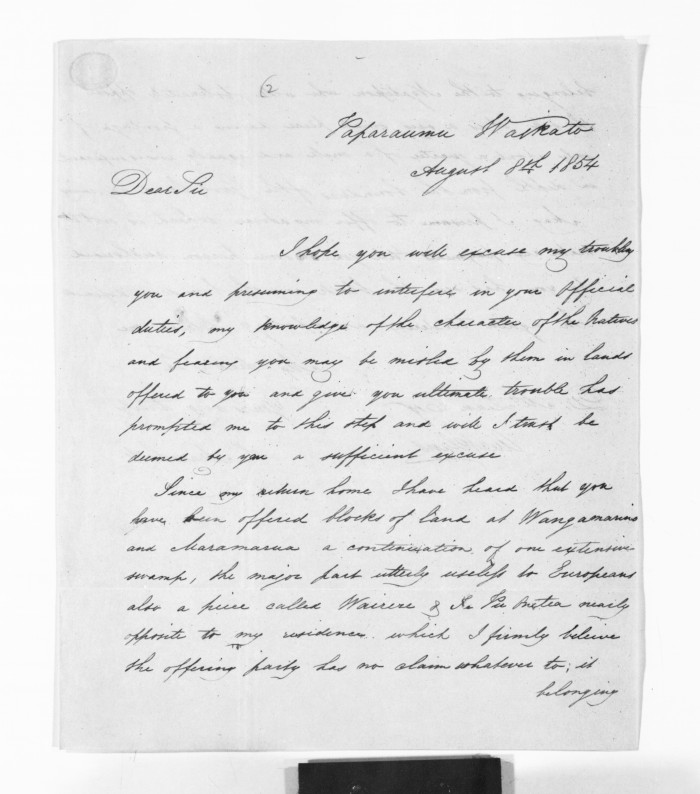 (2
Paparaumu Waikato
August 8th 1854
Dear Sir
I hope you will excuse my troubling
you and presuming to interfere in your Official
duties, my knowledge of the character of the Natives
and fearing you may be misled by them in lands
offered to you and give you ultimate trouble has
prompted me to this step and will I trust be
deemed by you a sufficient excuse
Since my return home I have heard that you
have been offered blocks of land at Wangamarino
and Maramarua a continuation of one extensive
swamp, the major part utterly useless to Europeans
also a piece called Wairere & nearly
opposite to my residence which I firmly beleive
the offering party has no claim whatever to; it
belonging